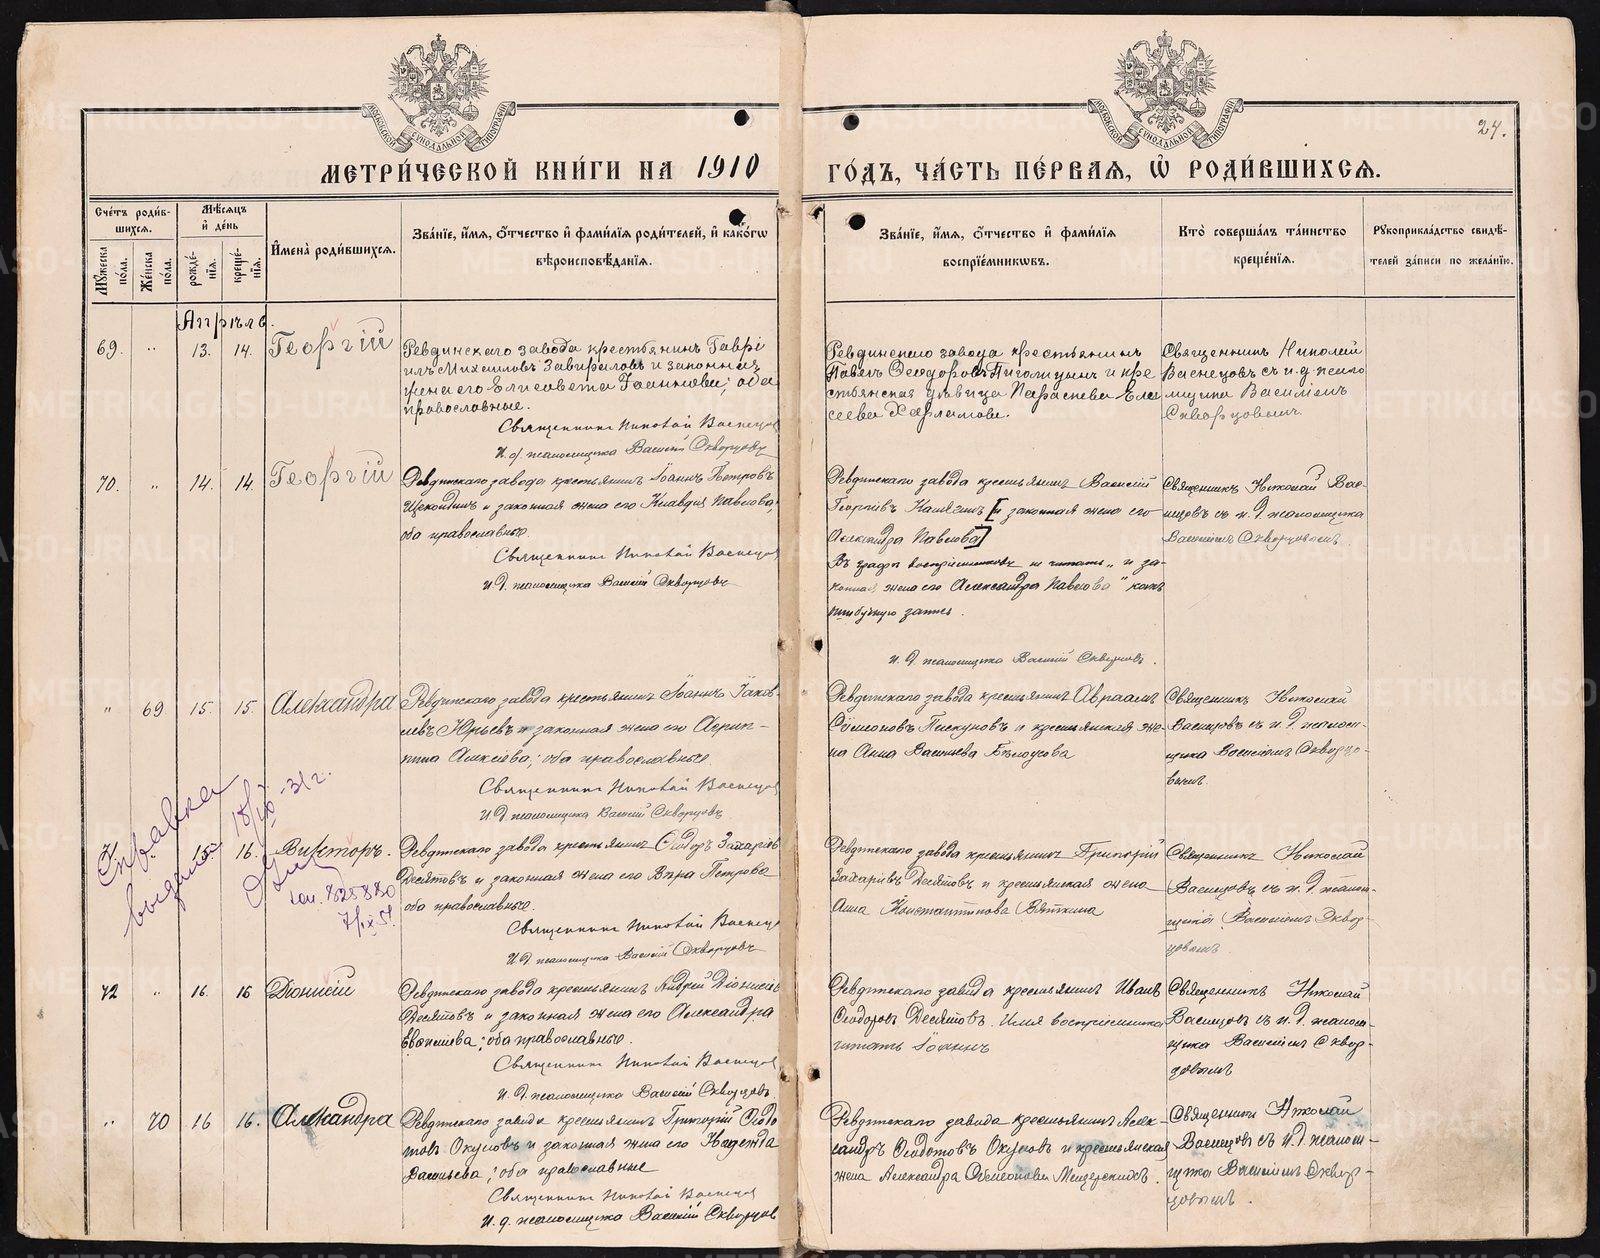 МОСКОВСКОЙ СѴНОДАЛЬНОЙ ТИПОГРАФІИ
МОСКОВСКОЙ СѴНОДАЛЬНОЙ ТИПОГРАФІИ
24.
МЕТРИ́ЧЕСКОЙ КНИ́ГИ НА 1910
ГО́ДЪ, ЧА́СТЬ ПЕ́РВАѦ, Ѡ РОДИ́ВШИХСѦ.
Сче́тъ роди́в-
шихсѧ.
Мꙋ́жеска по́ла.
Же́нска по́ла.
Мѣ́сѧцъ и де́нь
рожде́-нїѧ.
креще́-нїѧ.
И҆мена̀ роди́вшихсѧ.
Зва́нїе, и҆́мѧ, ѻ҆́тчество и҆ фами́лїѧ роди́телей, и҆ како́гѡ
вѣроисповѣ́данїѧ.
Зва́нїе, и҆́мѧ, ѻ҆́тчество и҆ фами́лїѧ
воспрїе́мникѡвъ.
Кто̀ соверша́лъ та́инство
креще́нїѧ.
Рꙋкоприкла́дство свидѣ́-
телей за́писи по жела́нїю.
Апрѣль.
69. „ 13. 14. Георгій
Ревдинскаго завода крестьянинъ Гаврі
илъ Михаиловъ Завираловъ и законная
жена его Елисавета Іоаннова; оба
православные.
Священникъ Николай Васнецов
И. д. псаломщика Василій Скворцовъ
Ревдинскаго завода крестьянинъ
Павелъ Ѳеодоровъ и кре
стьянская дѣвица Параскева Ели
сеева Харламова.
Священникъ Николай
Васнецовъ съ и. д. псало
мщика Василіемъ
Скворцовымъ.
70. „ 14. 14. Георгій
Ревдинскаго завода крестьянинъ Іоаннъ Петровъ
Щекотинъ и законная жена его Клавдия Павлова,
оба православные.
Священникъ Николай Васнецов
И. Д. псаломщика Василій Скворцовъ
Ревдинскаго завода крестьянинъ Василій
Георгіевъ [и законная жена его
Александра Павлова]
Въ графѣ воспріемниковъ не читать „и за-
конная жена его Александра Павлова" какъ
ошибочную запись.
И. Д. псаломщика Василій Скворцовъ.
Священникъ Николай Вас-
нецовъ съ и. Д. псаломщика
Василіемъ Скворцовымъ.
„ 69 15. 15. Александра
Ревдинскаго завода крестьянинъ Іоаннъ Іаков
левъ Юрьевъ и законная жена его Агрип-
пина Алексіева; оба православные.
Священникъ Николай Васнецов
И. Д. псаломщика Василій Скворцовъ.
Ревдинскаго завода крестьянинъ Авраамъ
Сѵмеоновъ Пискуновъ и крестьянская же-
на Анна Васильева Бѣлоусова
Священникъ Николай
Васнецовъ съ и. Д. псалом-
щика Василіемъ Скворцо-
вымъ.
15. 16. Викторъ.
Ревдинскаго завода крестьянинъ Ѳеодоръ Захаріевъ
Десятовъ и законная жена его Вѣра Петрова
оба православные.
Священникъ Николай Васнецов
И. Д. псаломщика Василій Скворцовъ
Ревдинскаго завода крестьянинъ Григорій
Захаріевъ Десятовъ и крестьянская жена
Анна Константинова Вяткина
Священникъ Николай
Васнецовъ съ и. Д. псалом-
щика Василіемъ Сквор-
цовымъ
Справка
выдана 18/IX-31г.
825880
7/IX 51.
72 „ 16. 16 Діонисій
Ревдинскаго завода крестьянинъ Андрей Діонисіев
Десятовъ и законная жена его Александра
; оба православные.
Священникъ Николай Васнецов
И. Д. псаломщика Василій Скворцовъ.
Ревдинскаго завода крестьянинъ Иванъ
Ѳеодоровъ Десятовъ. Имя воспріемника
читать Іоаннъ
Священникъ Николай
Васнецовъ съ и. Д. псалом-
щика Василіемъ Сквор-
цовымъ
„ 70 16 16. Александра
Ревдинскаго завода крестьянинъ Григорій Ѳеодо
товъ Окуловъ и законная жена его Надежда
Васильева; оба православные
Священникъ Николай Васнецов
И. д. псаломщика Василій Скворцов
Ревдинскаго завода крестьянинъ Алек-
сандръ Ѳеодотовъ Окуловъ и крестьянская
жена Александра Сѵмеонова Мещерскихъ.
Священникъ Николай
Васнецовъ съ И. Д. псалом-
щика Василіемъ Сквор-
цовымъ.
METRIKI.GASO-URAL.RU